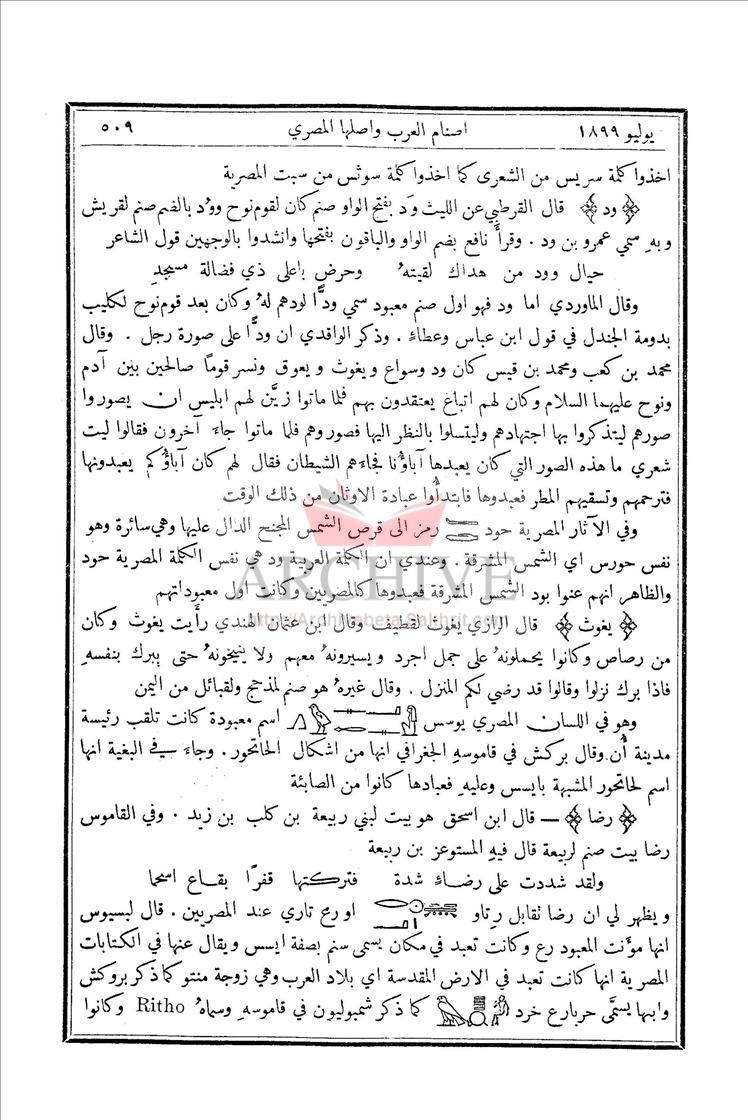 يوليو ١٨٩٩ اصنام العرب واصلها المصري ٥٠٩
اخذوا كلمة سريس من الشعرى كما اخذوا كلمة سوثس من سبت المصرية
﴿ ود ﴾ قال القرطبي عن الليث وَد بفتح الواو صنم كان لقوم نوح ووُد بالضم صنم لقريش
وبهِ سمي عمرو بن ود . وقرأ نافع بضم الواو والباقون بفتحها وانشدوا بالوجهين قول الشاعر
حيال وود من هداك لقيتهُ وحرضٍ باعلى ذي فضالة مسجدِ
وقال الماوردي اما ود فهو اول صنم معبود سمي ودًّا لودهم لهُ وكان بعد قوم نوح لكليب
بدومة الجندل في قول ابن عباس وعطاءٍ . وذكر الواقدي ان ودًّا على صورة رجل . وقال
محمد بن كعب ومحمد بن قيس كان ود وسواع ويغوث ويعوق ونسر قومًا صالحين بين آدم
ونوح عليهما السلام وكان لهم اتباع يعتقدون بهم فلما ماتوا زيَّن لهم ابليس ان يصوروا
صورهم ليتذكروا بها اجتهادهم وليتسلوا بالنظر اليها فصوروهم فلما ماتوا جاءَ آخرون فقالوا ليت
شعري ما هذه الصور التي كان يعبدها آباؤنا فجاءهم الشيطان فقال لهم كان آباؤكم يعبدونها
فترحمهم وتسقيهم المطر فعبدوها فابتدأوا عبادة الاوثان من ذلك الوقت
وفي الآثار المصرية حود رمز الى قرص الشمس المجنح الدال عليها وهي سائرة وهو
نفس حورس اي الشمس المشرقة . وعندي ان الكلمة العربية ود هي نفس الكلمة المصرية حود
والظاهر انهم عنوا بود الشمس المشرقة فعبدوها كالمصريين وكانت اول معبوداتهم
﴿ يغوث ﴾ قال الرازي يغوث لقطيف وقال ابن عثمان الهندي رأيت يغوث وكان
من رصاص وكانوا يحملونهُ على جمل اجرد ويسيرونهُ معهم ولا ينيخونهُ حتى يبرك بنفسهِ
فاذا برك نزلوا وقالوا قد رضي لكم المنزل . وقال غيرهُ هو صنم لمذحج ولقبائل من اليمن
وهو في اللسان المصري يوسس اسم معبودة كانت تلقب رئيسة
مدينة أُن وقال بركش في قاموسهِ الجغرافي انها من اشكال الحاتحور . وجاءَ في البغية انها
اسم لحاتحور المشبهة بايسس وعليهِ فعبادها كانوا من الصابئة
﴿ رضا ﴾ — قال ابن اسحق هو بيت لبني ربيعة بن كلب بن زيد . وفي القاموس
رضا بيت صنم لربيعة قال فيهِ المستوعز بن ربيعة
ولقد شددت على رضاءٍ شدة فتركتها قفرًا بقاع اسحما
ويظهر لي ان رضا تقابل رتاو او رع تاري عند المصريين . قال لبسيوس
انها مؤنت المعبود رع وكانت تعبد في مكان يسمى سنم بصفة ايسس ويقال عنها في الكتابات
المصرية انها كانت تعبد في الارض المقدسة اي بلاد العرب وهي زوجة منتو كما ذكر بروكش
وابها يسمَّى حربارع خرد كما ذكر شمبوليون في قاموسهِ وسماهُ Ritho وكانوا
ARCHIVE
http://Archivebeta.Sakhrit.com